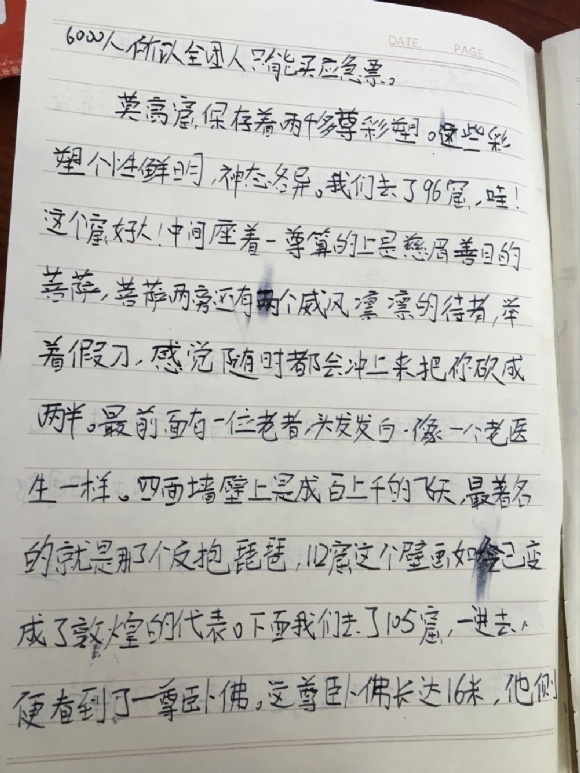 DATE. PAGE
6000人所以全团人只能买应急票。
莫高窟,保存着两千多尊彩塑。这些彩
塑个性鲜明,神态各异。我们去了96窟,哇!
这个窟好大!中间座着一尊算的上是慈眉善目的
菩萨,菩萨两旁还有两个威风凛凛的待者,举
着假刀,感觉随时都会冲上来把你砍成
两半。最前面有一位老者,头发发白,像一个老医
生一样。四面墙壁上是成百上千的飞天,最著名
的就是那个反抱琵琶,112窟这个壁画如已变
成了敦煌的代表。下面我们去了105窟,一进去,
便看到了一尊卧佛。这尊卧佛长达16米,他侧